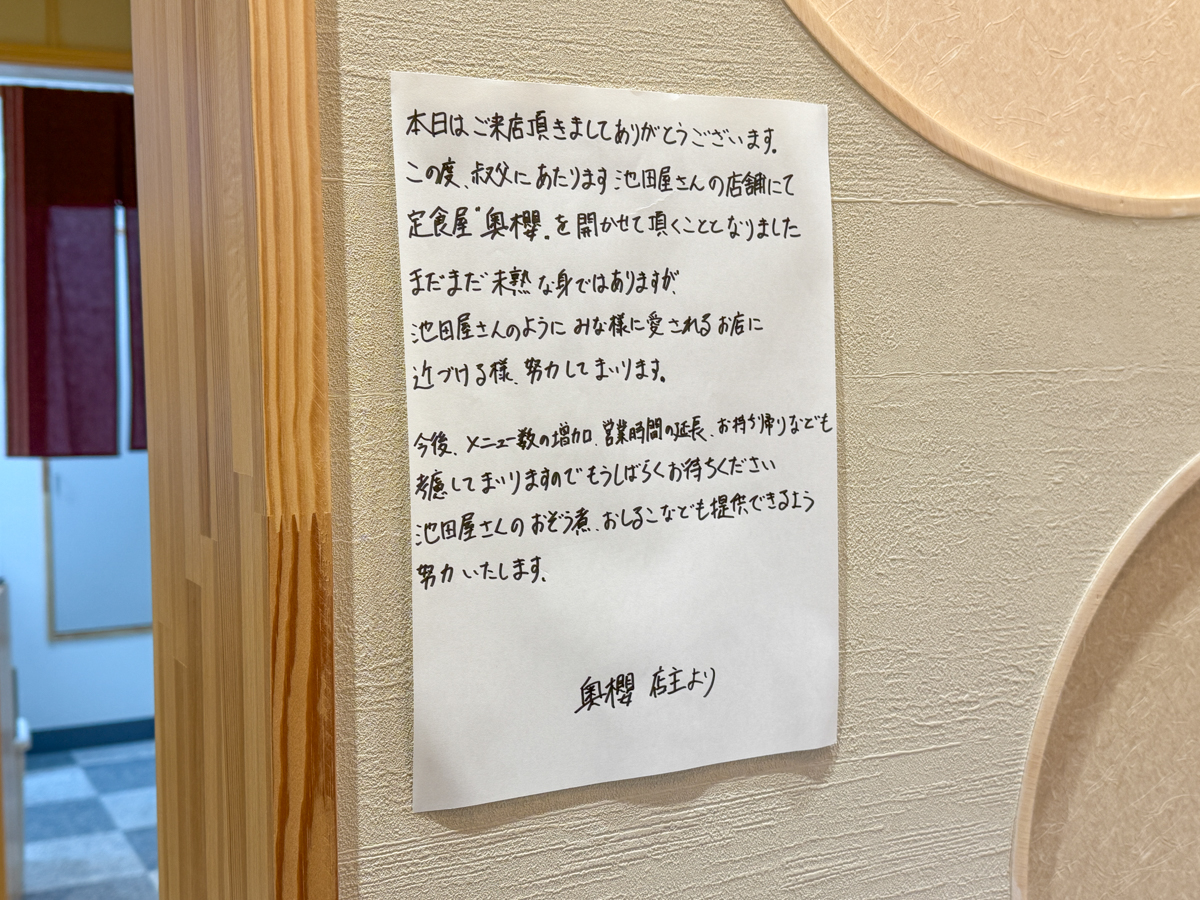 本日はご来店頂きましてありがとうございます。
この度、叔父にあたります池田屋さんの店舗にて
定食屋“奥櫻„を開かせて頂くこととなりました
まだまだ未熟な身ではありますが、
池田屋さんのようにみな様に愛されるお店に
近づける様、努力してまいります。
今後、メニュー数の増加、営業時間の延長、お持ち帰りなども
考慮してまいりますのでもうしばらくお待ちください
池田屋さんのおぞう煮、おしるこなども提供できるよう
努力いたします。
奥櫻 店主より